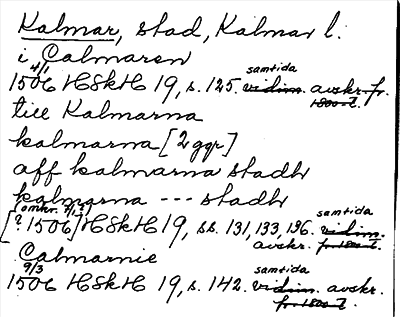 Kalmar, stad, Kalmar l.
i Calmaren
4/1 samtida
1506 HSkH 19, s. 125. vidim. avskr. fr.
1800-t.
till Kalmarna
kalmarna [2 ggr]
aff kalmarna stadh
kalmarna --- stadh
[omkr. 7/1?] samtida
[? 1506] HSkH 19, ss. 131, 133, 136. vidim.
avskr. fr. 1800-t.
Calmarnie
9/3 samtida
1506 HSkH 19, s. 142. vidim. avskr.
fr. 1800-t.